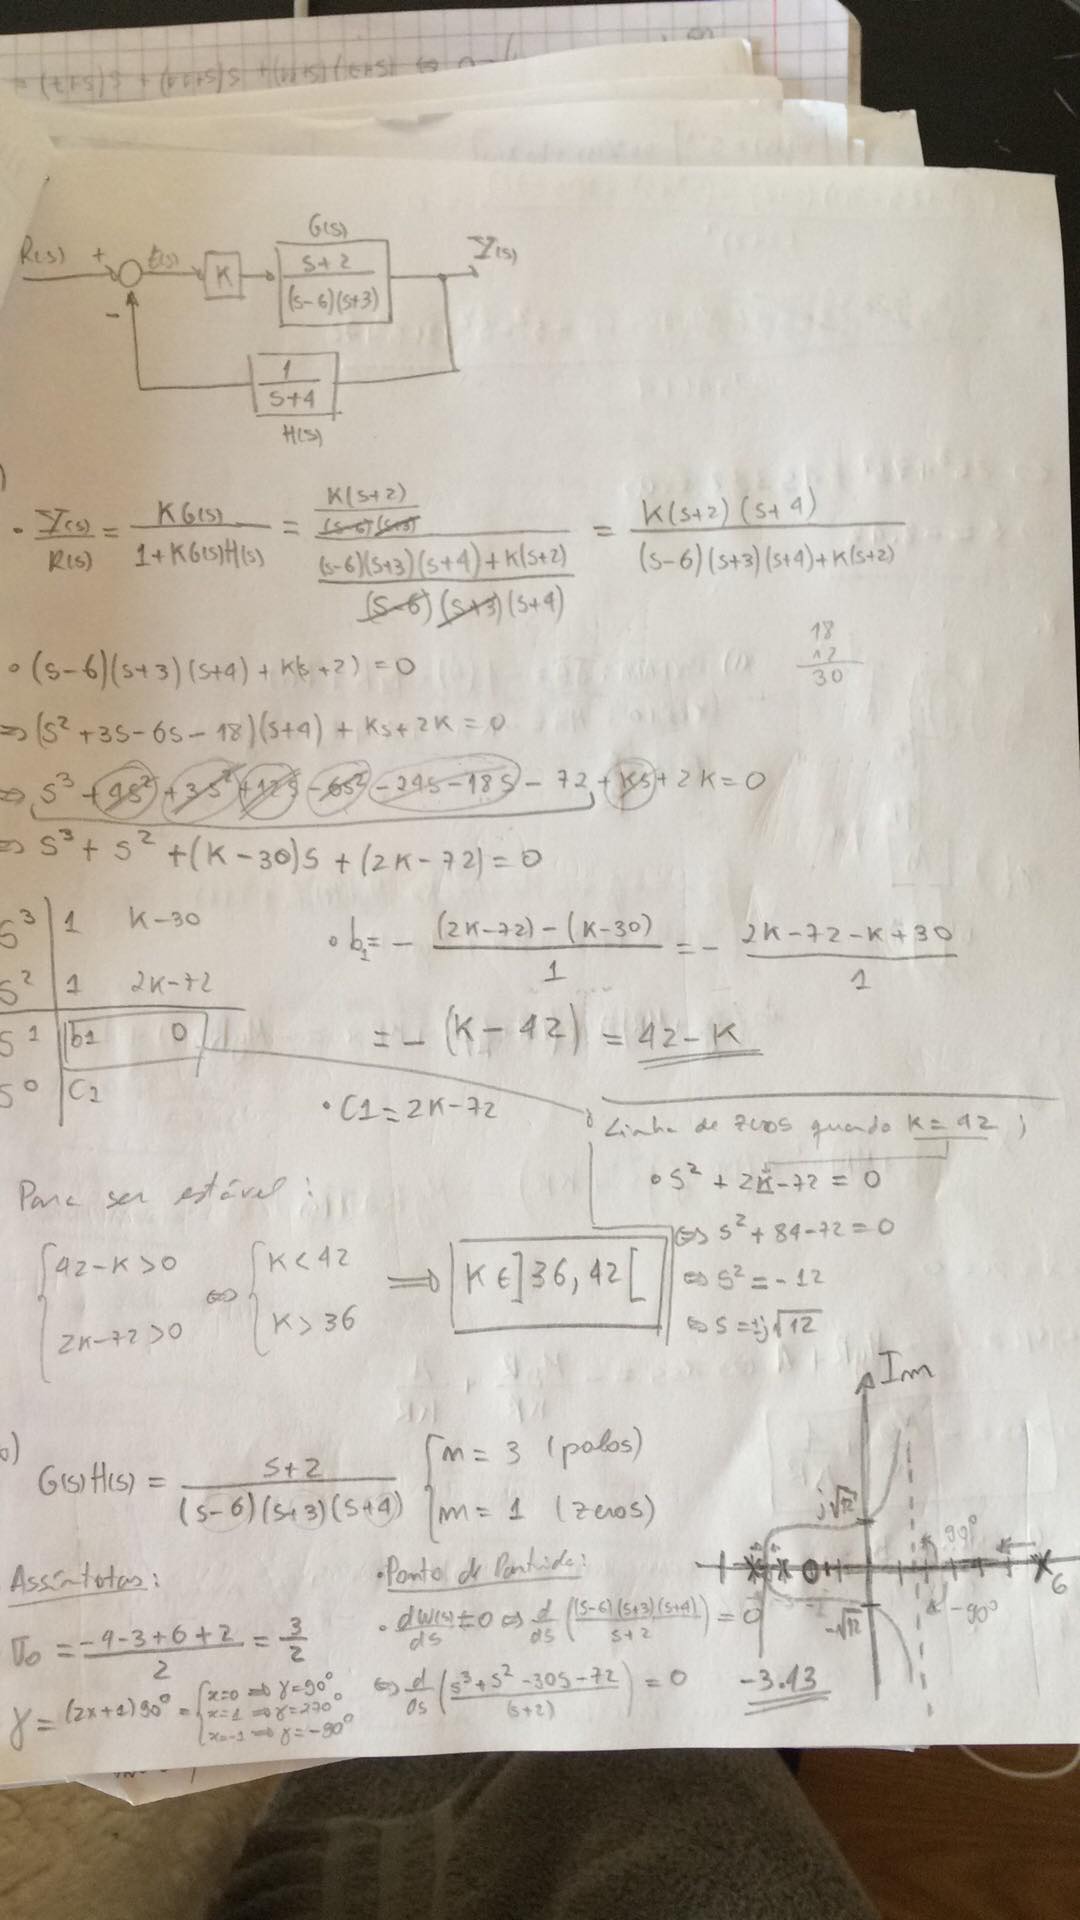 G(s)
R(s) + E(s) K \frac{s+2}{(s-6)(s+3)} Y(s)
-
\frac{1}{s+4}
H(s)
)
• \frac{Y(s)}{R(s)} = \frac{KG(s)}{1+KG(s)H(s)} = \frac{\frac{K(s+2)}{(s-6)(s+3)}}{\frac{(s-6)(s+3)(s+4)+K(s+2)}{(s-6)(s+3)(s+4)}} = \frac{K(s+2)(s+4)}{(s-6)(s+3)(s+4)+K(s+2)}
18
12
30
• (s-6)(s+3)(s+4) + K(s+2) = 0
⇒ (s² + 3s - 6s - 18)(s+4) + Ks + 2K = 0
⇒ s³ + 4s² + 3s² + 12s - 6s² - 24s - 18s - 72 + Ks + 2K = 0
⇒ s³ + s² + (K-30)s + (2K-72) = 0
s³ | 1 K-30
s² | 1 2K-72
s¹ | b1 0
s⁰ | C1
• b₁ = - \frac{(2K-72)-(K-30)}{1} = - \frac{2K-72-K+30}{1}
= - (K-42) = 42-K
• C1 = 2K-72
Linha de zeros quando K=42 ;
• s² + 2K-72 = 0
⇔ s² + 84-72 = 0
⇔ s² = -12
⇔ s = ±j√12
Para ser estável:
{42-K>0 ⇔ {K<42 ⇒ K∈]36,42[
{2K-72>0 {K>36
b)
G(s)H(s) = \frac{s+2}{(s-6)(s+3)(s+4)} {n = 3 (polos)
{m = 1 (zeros)
Assíntotas:
σ₀ = \frac{-4-3+6+2}{2} = \frac{3}{2}
γ = (2x+1)90° = {x=0 ⇒ γ=90°
x=1 ⇒ γ=270°
x=-1 ⇒ γ=-90°
• Ponto de Partida:
• \frac{dW(s)}{ds} = 0 ⇔ \frac{d}{ds} (\frac{(s-6)(s+3)(s+4)}{s+2}) = 0
⇔ \frac{d}{ds} (\frac{s³+s²-30s-72}{(s+2)}) = 0
-3.43
Im
j√12
90°
-2
6
-√12
-90°